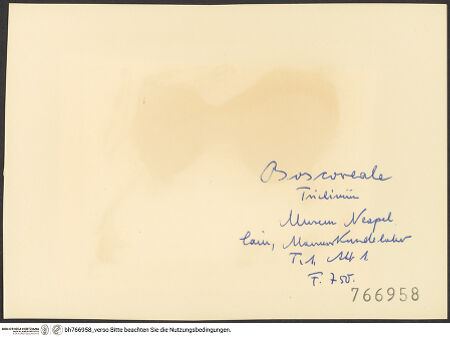 Boscoreale
Triclinium
Museum Neapel
Cain, Marmorkandelaber
T. 1, Abb 1
F. 750.
766958
bh766958_verso Bitte beachten Sie die Nutzungsbedingungen.